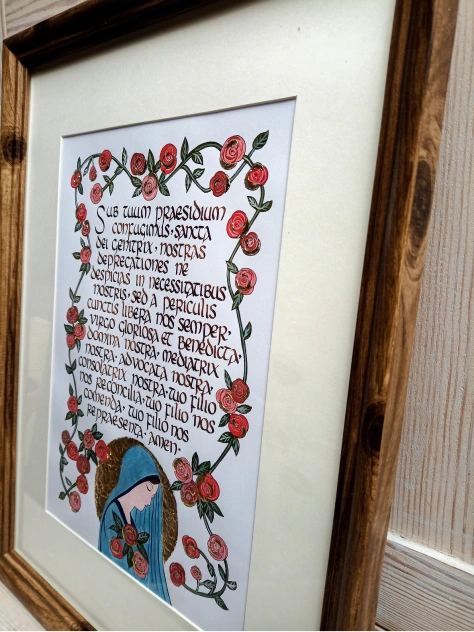 Sub tuum praesidium
confugimus · sancta
dei genitrix · nostras
deprecationes ne
despicias in necessitatibus
nostris · sed a periculis
cunctis libera nos semper ·
virgo gloriosa et benedicta ·
domina nostra · mediatrix
nostra · advocata nostra ·
consolatrix nostra · tuo filio
nos reconcilia · tuo filio nos
comenda · tuo filio nos
repraesenta · amen ·